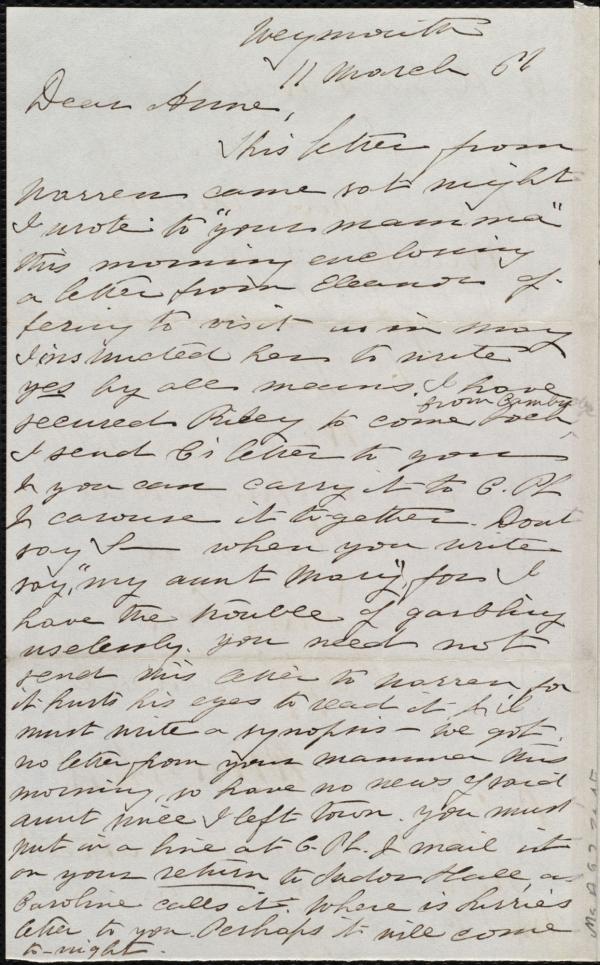 Weymouth
11 March 61
Dear Anne,
This letter from
Warren came sat night
I wrote to "your mamma"
this morning enclosing
a letter from Eleanor of-
fering to visit us in May
I instructed her to write
yes by all means. I have
from Camb
secured Riley to come
I send C's letter to you
& you can carry it to C. Pl.
& carouse it together. Dont
say S— when you write
say, "my aunt Mary", for I
have the trouble of garbling
uselessly. You need not
send this letter to Warren, for
it hurts his eyes to read it &
must write a synopsis – We got
no letter from your mamma this
morning, so have no news of said
aunt since I left town. You must
put in a line at C. Pl. & mail it
on your return to Tudor Hall, as
Caroline calls it. Where is Lizzie's
letter to you. Perhaps it will come
to-night.